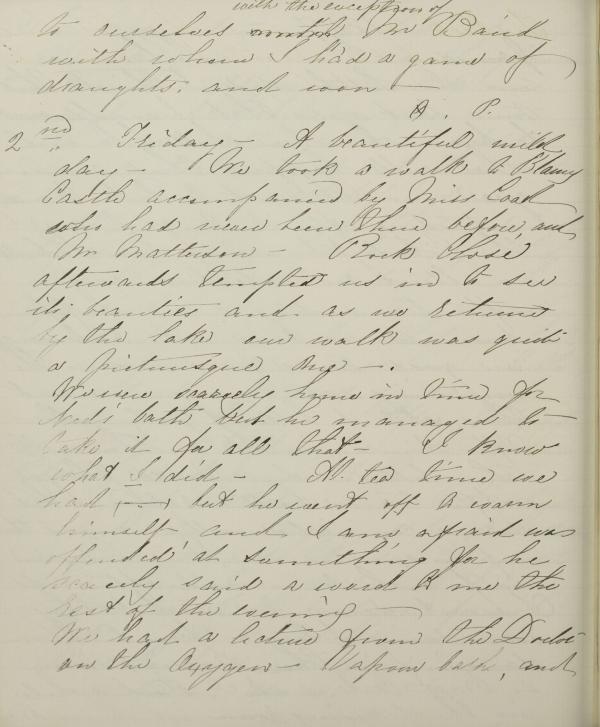 with the exception of
to ourselves Mr Baird
with whom I had a game of
draughts. and won —
A. P.
2nd Friday — A beautiful mild
day — We took a walk to Blarney
Castle accompanied by Miss Coad
who had never been there before, and
Mr Matterson — Rock Close
afterwards tempted us in to see
its beauties and as we returned
by the lake our walk was quite
a picturesque one —.
We were scarcely home in time for
Ned's bath but he managed to
take it for all that — I know
what I did — At tea time we
had but he went off to warm
himself and I am afraid was
offended at something for he
scarcely said a word to me the
rest of the evening —
We had a lecture from the Doctor
on the Oxygen — Vapour bath, and